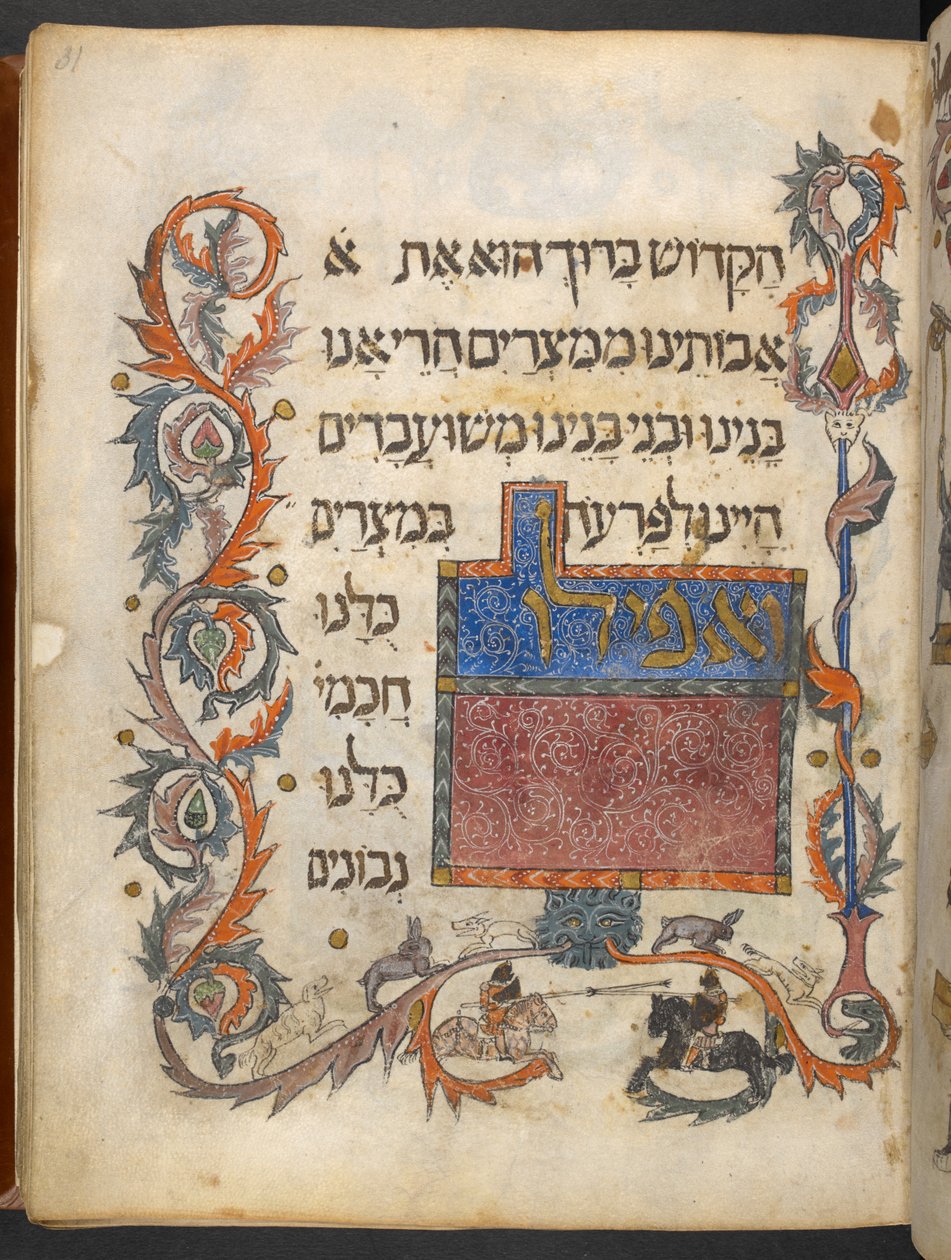 31
הַקָּדוֹשׁ בָּרוּךְ הוּא אֶת א
אֲבוֹתֵינוּ מִמִּצְרַיִם הֲרֵי אָנוּ
בָּנֵינוּ וּבְנֵי בָּנֵינוּ מְשׁוּעֲבָּדִים
הָיִינוּ לְפַרְעֹה בְּמִצְרַיִם
ואפילו כֻּלָּנוּ
חֲכָמִי
כֻּלָּנוּ
נְבוֹנִים